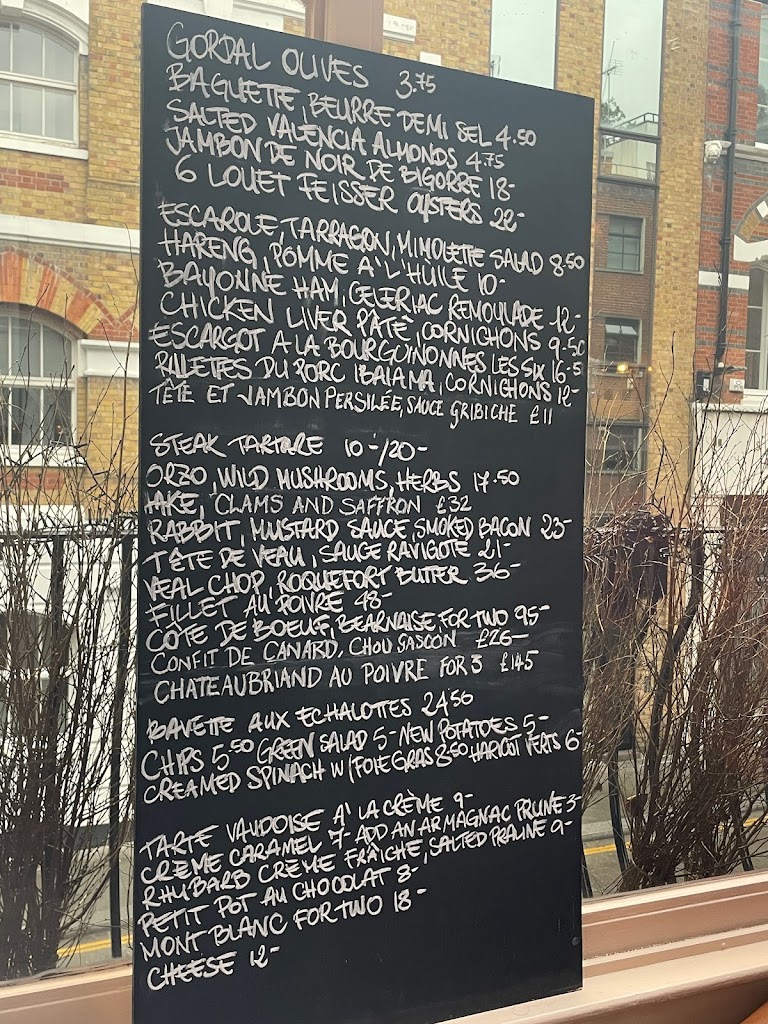 GORDAL OLIVES 3.75
BAGUETTE, BEURRE DEMI SEL 4.50
SALTED VALENCIA ALMONDS 4.75
JAMBON DE NOIR DE BIGORRE 18-
6 LOUET FEISSER OYSTERS 22-
ESCAROLE, TARRAGON, MIMOLETTE SALAD 8.50
HARENG, POMME A' L'HUILE 10-
BAYONNE HAM, CELERIAC REMOULADE 12-
CHICKEN LIVER PÂTÈ, CORNICHONS 9-50
ESCARGOT A LA BOURGUINONNES LES SIX 16-5
RILLETTES DU PORC IBAIAMA, CORNICHONS 12-
TÊTE ET JAMBON PERSILÉE, SAUCE GRIBICHE £11
STEAK TARTARE 10-/20-
ORZO, WILD MUSHROOMS, HERBS 17.50
HAKE, CLAMS AND SAFFRON £32
RABBIT, MUSTARD SAUCE, SMOKED BACON 23-
TÊTE DE VEAU, SAUCE RAVIGOTE £1-
VEAL CHOP, ROQUEFORT BUTTER 36-
FILLET AU POIVRE 48-
CÔTE DE BOEUF, BEARNAISE FOR TWO 95-
CONFIT DE CANARD, CHOU GASCON £26-
CHATEAUBRIAND AU POIVRE FOR 3 £145
BAVETTE AUX ECHALOTTES 24.50
CHIPS 5.50 GREEN SALAD 5- NEW POTATOES 5-
CREAMED SPINACH W/FOIE GRAS 8.50 HARICOT VERTS 6-
TARTE VAUDOISE A' LA CRÈME 9-
CRÈME CARAMEL 7- ADD AN ARMAGNAC PRUNE 3-
RHUBARB CRÈME FRAÎCHE, SALTED PRALINE 9-
PETIT POT AU CHOCOLAT 8-
MONT BLANC FOR TWO 18-
CHEESE 12-